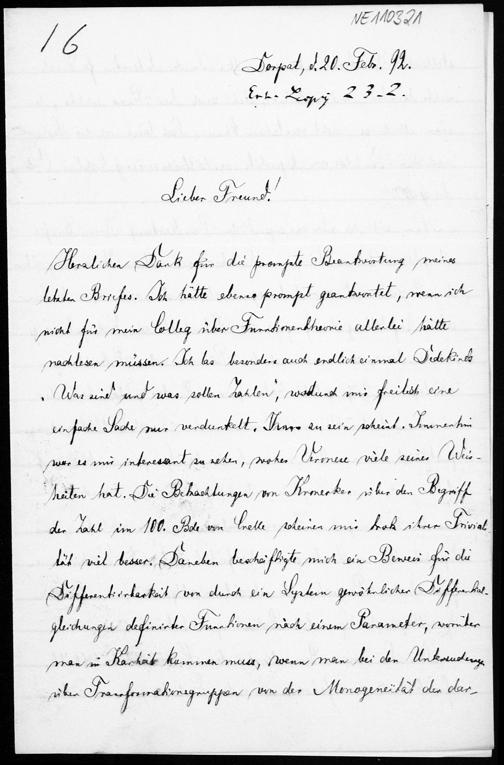 16
NE110321
Dorpat, d. 20. Febr. 92.
23.2.
Lieber Freund!
Herzlichen Dank für die prompte Beantwortung meines
letzten Briefes. Ich hätte ebenso prompt geantwortet, wenn ich
nicht für mein Colleg über Functionentheorie allerlei hätte
nachlesen müssen. Ich las besonders auch endlich einmal Dedekinds
„Was sind und was sollen Zahlen", wodurch mir freilich eine
einfache Sache nur verdunkelt zu sein scheint. Immerhin
war es mir interessant zu sehen, woher Veronese viele seiner Weis-
heiten hat. Die Betrachtungen von Kronecker über den Begriff
der Zahl im 100. Bde von Crelle scheinen mir trotz ihrer Trivial
tät viel besser. Daneben beschäftigte mich ein Beweis für die
Differentiirbarkeit von durch ein System gewöhnlicher Differential-
gleichungen definirter Functionen nach einem Parameter, worüber
man in Klarheit kommen muss, wenn man bei den Untersuchungen
über Transformationsgruppen von der Monogeneität der dar-